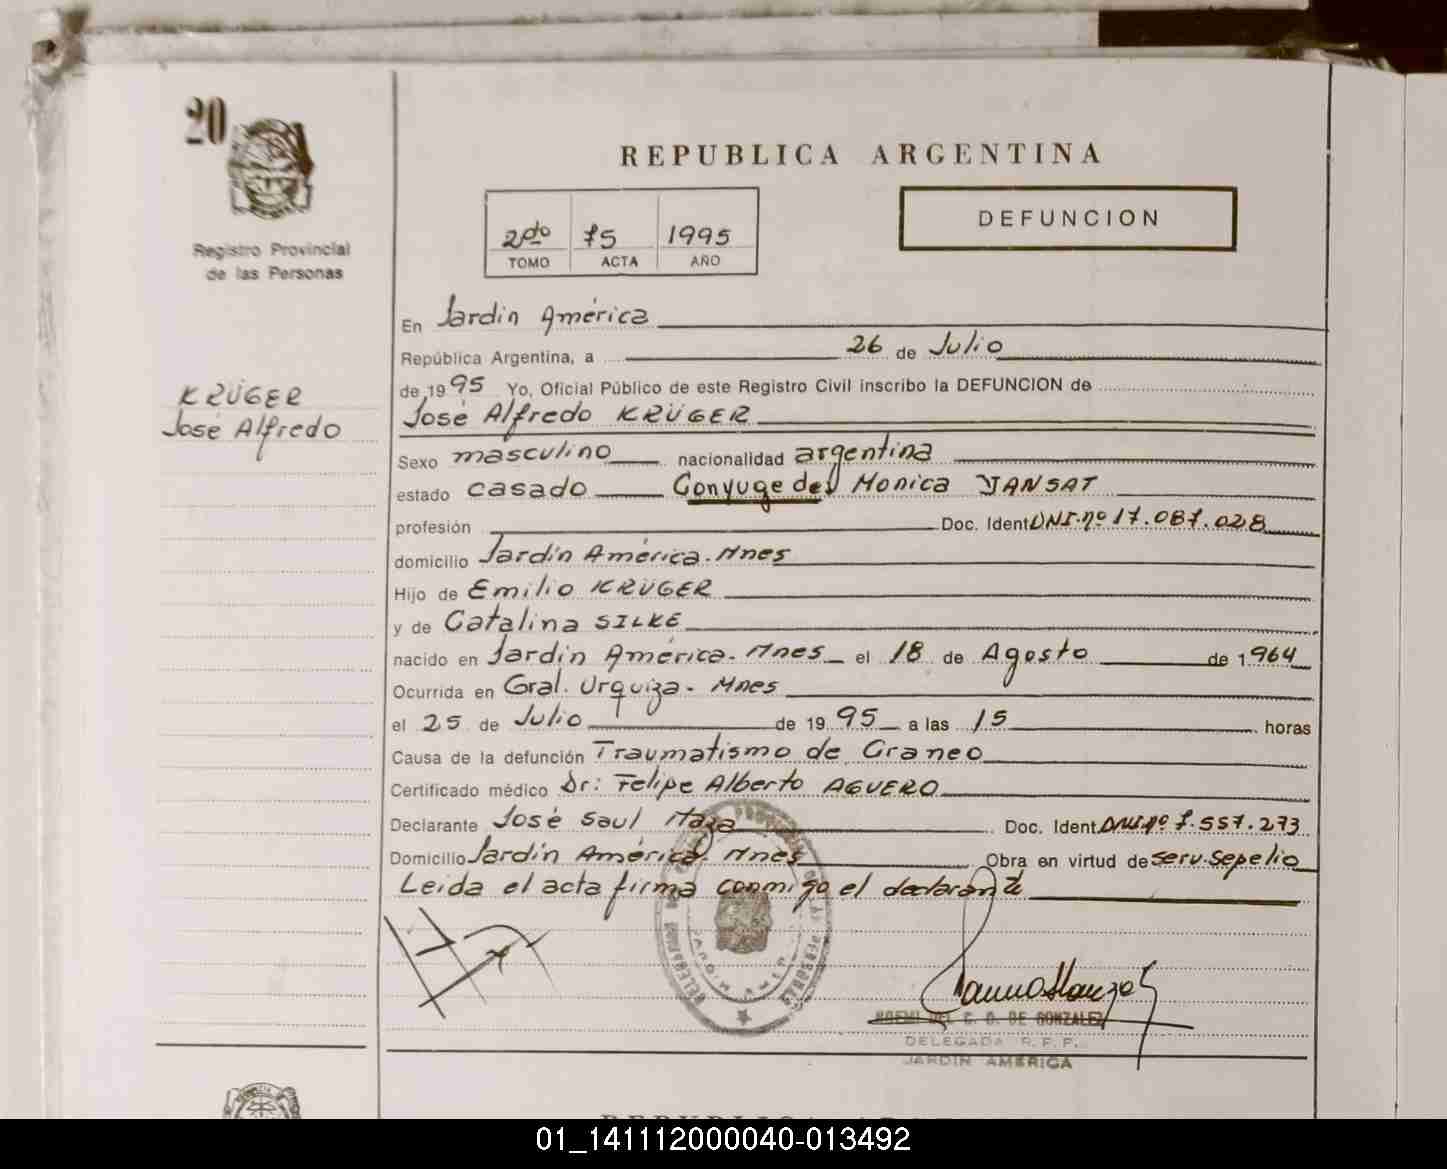 20
Registro Provincial
de las Personas
KRÜGER
José Alfredo
REPUBLICA ARGENTINA
2do 75 1995
TOMO ACTA AÑO
DEFUNCION
En Jardín América
República Argentina, a 26 de Julio
de 1995 Yo, Oficial Público de este Registro Civil inscribo la DEFUNCION de
José Alfredo KRÜGER
Sexo masculino nacionalidad argentina
estado casado Conyuge de: Monica JANSAT
profesión Doc. Ident. DNI.nº 17.087.028
domicilio Jardín América. Mnes
Hijo de Emilio KRÜGER
y de Catalina SILKE
nacido en Jardín América. Mnes el 18 de Agosto de 1964
Ocurrida en Gral. Urquiza. Mnes
el 25 de Julio de 1995 a las 15 horas
Causa de la defunción Traumatismo de Craneo
Certificado médico Dr: Felipe Alberto AGUERO
Declarante José Saul Maza Doc. Ident. DNI.nº 7.557.273
Domicilio Jardín América. Mnes Obra en virtud de serv. sepelio
Leida el acta firma conmigo el declarante
DE GONZALEZ
DELEGADA R.P.P.
JARDIN AMERICA
01_141112000040-013492